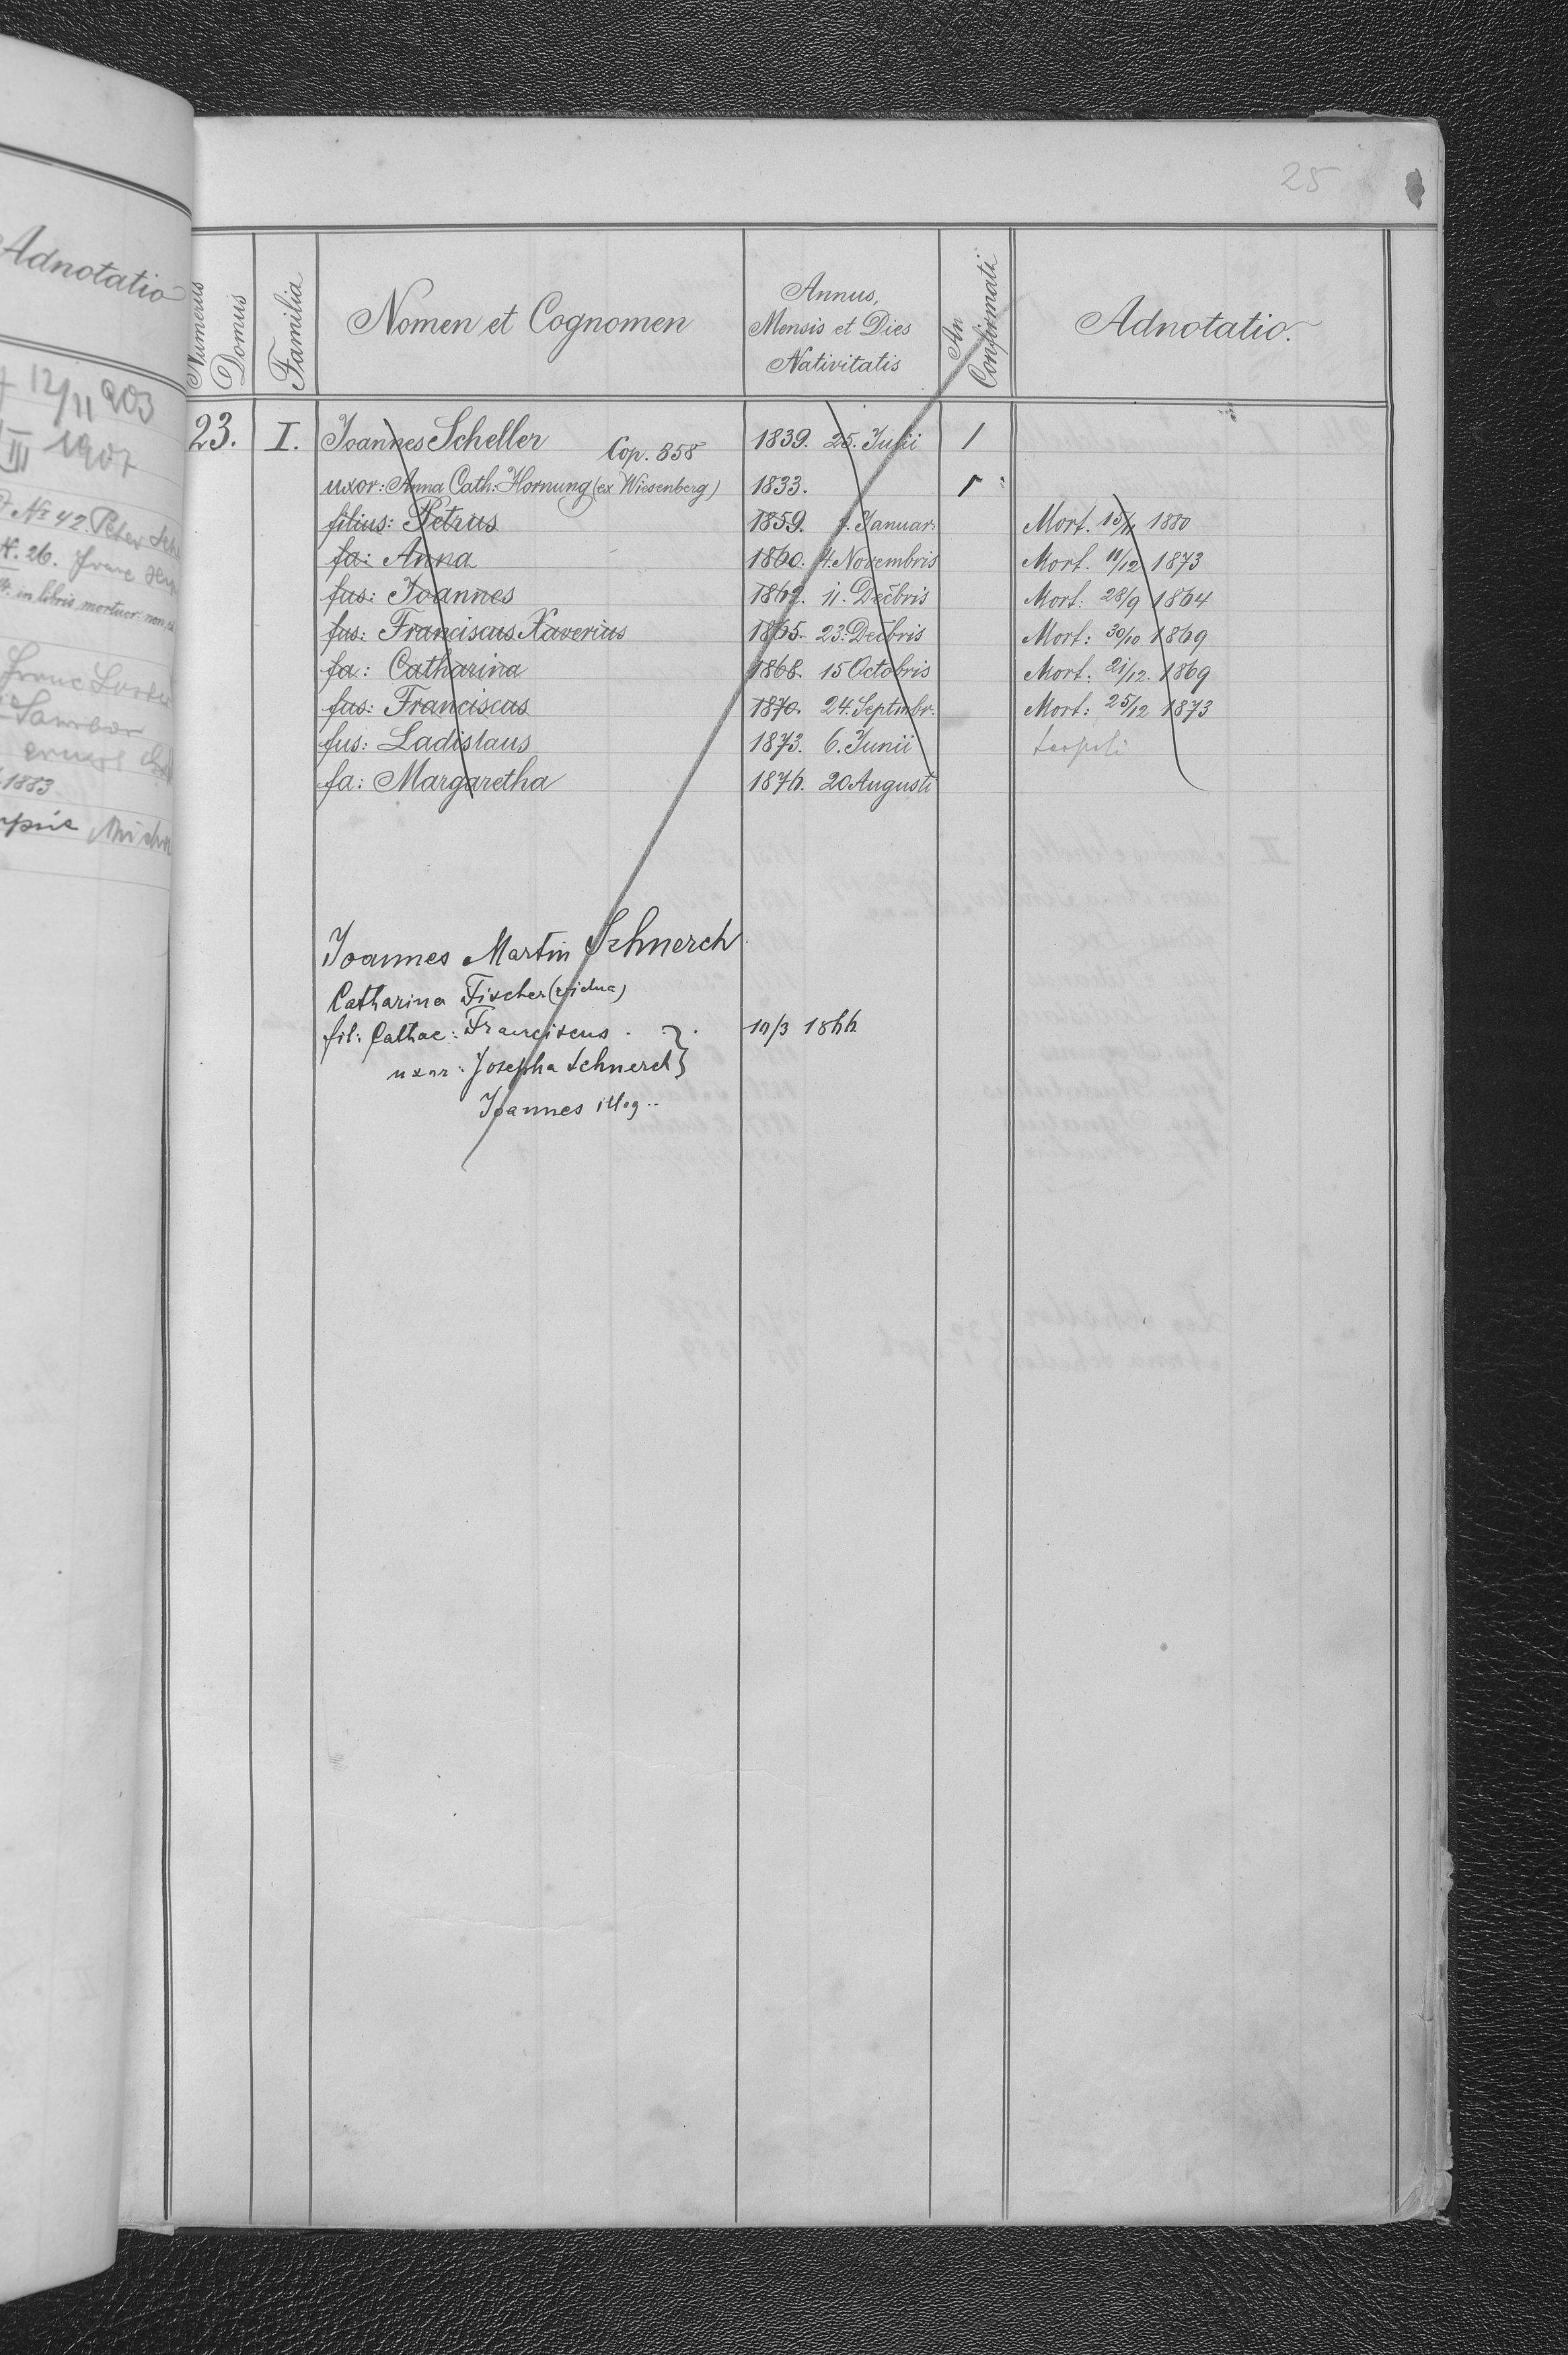 Adnotatio
12/11 903
III 1907
No 42. Peter
N. 26. Franc
in libris mortuor. non
Franc
Sambor
1883
25
Numerus Domus
Familia
Nomen et Cognomen
Annus, Mensis et Dies Nativitatis
An Confirmati
Adnotatio.
23. I. Joannes Scheller Cop. 858 1839. 25. Julii 1
uxor: Anna Cath: Hornung (ex Wiesenberg) 1833. 1
filius: Petrus 1859. 7. Januar. Mort. 15/11 1880
fa: Anna 1860. 4. Novembris Mort. 11/12 1873
fus: Joannes 1862. 11. Decbris Mort: 28/9 1864
fus: Franciscus Xaverius 1865. 23. Decbris Mort: 30/10 1869
fa: Catharina 1868. 15 Octobris Mort: 21/12. 1869
fus: Franciscus 1870. 24. Septmbr. Mort: 25/12 1873
fus: Ladislaus 1873. 6. Junii Leopoli
fa: Margaretha 1876. 20 Augusti
Joannes Martin Schnerch
Catharina Fischer (vidua)
fil: Cathae: Franciscus 10/3 1866.
uxor: Josepha Schnerch }
Joannes illeg.